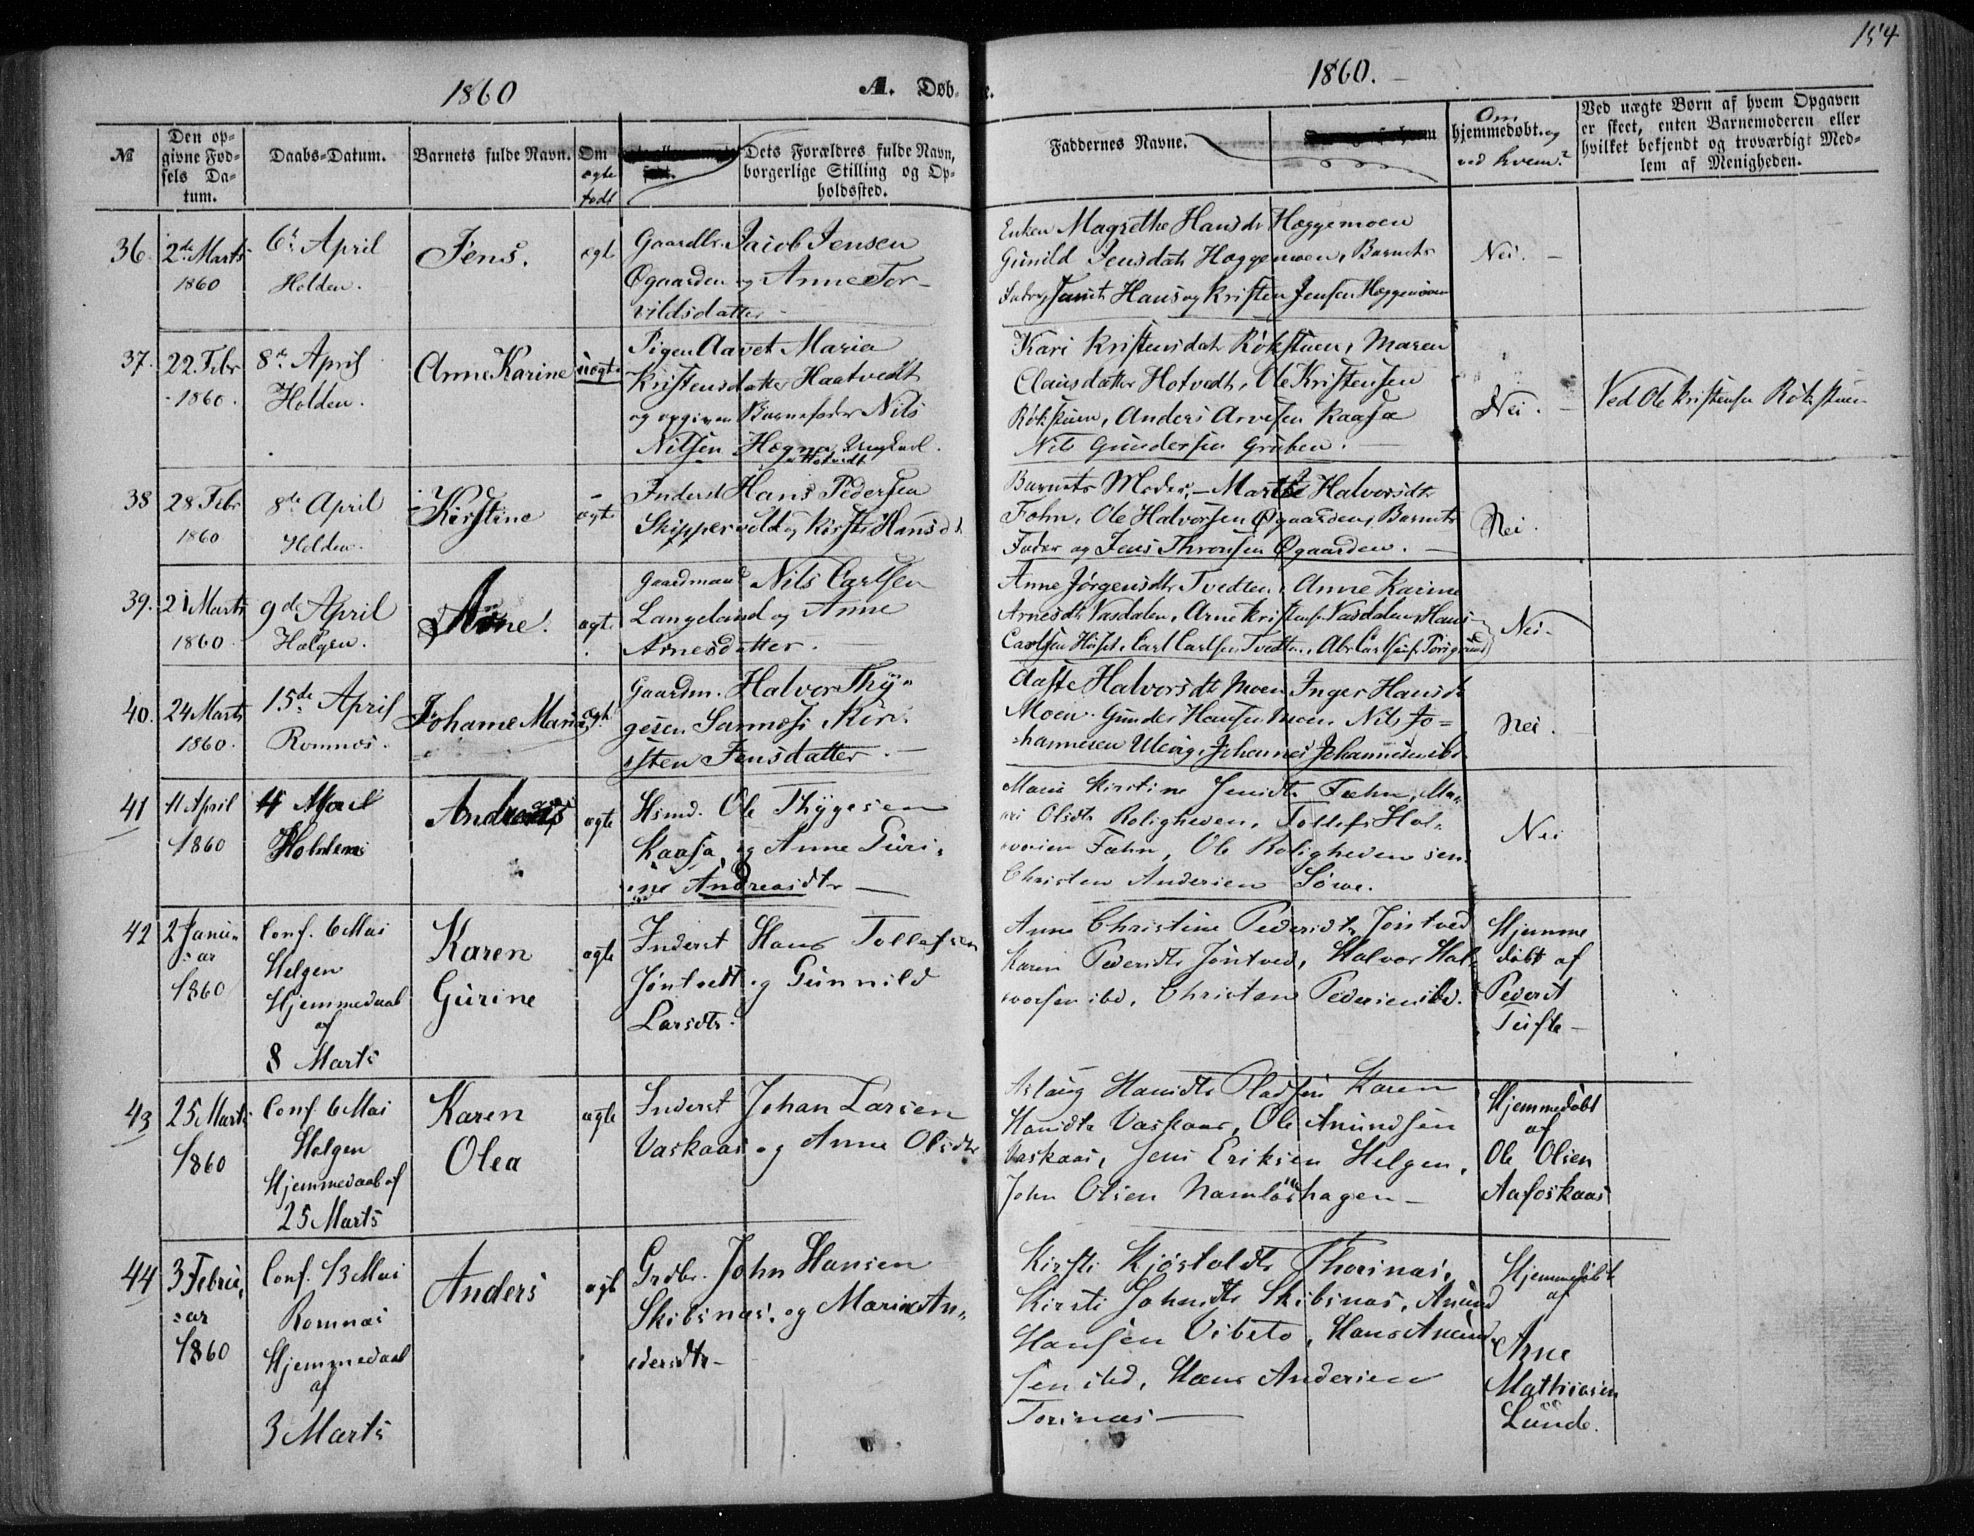 154
1860
A. Døb-
e.
1860.
№
Den op-
givne Fød-
sels Da-
tum.
Daabs-Datum.
Barnets fulde Navn.
Om
ægte
født
Dets Forældres fulde Navn,
borgerlige Stilling og Op-
holdssted.
Faddernes Navne.
Om
hjemmedøbt. og
ved hvem?
Ved uægte Børn af hvem Opgaven
er skeet, enten Barnemoderen eller
hvilket bekjendt og troværdigt Med-
lem af Menigheden.
36.
2de Marts
1860
6te April
Holden.
Jens.
ægte
Gaardbr. Jacob Jensen
Øgaarden og Anne Tor-
vildsdatter
Enken Magrethe Hansdr Hæggemoen
Gunild Jensdatr Hæggemoen, Barnets
Fader, samt Hans og Kristen Jensen Hæggemoen
Nei. -
37.
22 Febr
1860.
8de April
Holden.
Anne Karine
uægte
Pigen Aavet Maria
Kristensdatter Haatvedt
og opgiven Barnefader Nils
Nilsen Hægna, Ungkarl.
Hotvedt
Kari Kristensdatr Rökstuen, Maren
Clausdatter Hotvedt, Ole Kristensen
Rökstuen, Anders Arvesen Kaasa
Nils Gundersen Gruben.
Nei. -
Ved Ole Kristensen Rökstuen
38
28 Febr
1860
8de April
Holden.
Kirstine
ægte
Inderst Hans Pedersen
Skippervold og Kirsti Hansdt
Barnets Moder, - Marthe Halvorsdtr
Fæhn, Ole Halvorsen Øgaarden, Barnets
Fader og Jens Thronsen Øgaarden. -
Nei.
39.
21 Marts
1860.
9de April
Helgen.
Arne.
ægte.
Gaardmand Nils Carlsen
Langeland og Anne
Arnesdatter. -
Anne Jørgensdtr Tvedten, Anne Karine
Arnesdtr Vasdalen, Arne Kristens. Vasdalen, Hans
Carlsen Huset, Carl Carlsen Tvedten, Abr Carlsen
Nei-
40.
24 Marts
1860.
15de April
Romnes.
Johanne Maria
ægte
Gaardm. Halvor Thy-
gesen Sannæs, Kir-
sten Jensdatter. -
Aaste Halvorsdt Moen Inger Hansdt
Moen. Gunder Hansen Moen, Nils Jo=
hannesen Ulvig, Johannes Johannesen ibd
Nei.
41
11 April
1860
Holden
Andreas
ægte
Hsmd. Ole Thygesen
Kaasa, og Anne Guri-
ne Andreasdtr -
Maria Kirstine Jensdtr Fæhn, Ma-
ri Olsdtr Roligheden, Tollef Hal-
vorsen Fæhn, Ole Roligheden sen.
Christen Andersen Søve.
Nei
42
2 Janu-
ar
1860
Conf. 6 Mai
Helgen
Hjemmedaab
af
8 Marts
Karen
Gurine
ægte
Inderst Hans Tollefsen
Jøntvedt og Gunnild
Larsdtr.
Anne Christine Pedersdtr Jøntved
Karen Pedersdtr Jøntved, Halvor Hal-
vorsen ibd, Christen Pedersen ibd.
Hjemme
døbt af
Peder
Tufte -
43
25 Marts
1860
Conf. 6 Mai
Helgen
Hjemmedaab af
25 Marts
Karen
Olea
ægte
Inderst Johan Larsen
Vaskaas og Anne Olsdtr
Aslaug Hansdtr Pladsen Karen
Hansdtr Vaskaas, Ole Amundsen
Vaskaas, Jens Eriksen Helgen,
John Olsen Namløshagen -
Hjemmedøbt
af
Ole Olsen
Aafoskaas
44
3 Febru-
ar
1860
Conf. 13 Mai
Romnæs
Hjemmedaab
af
3 Marts
Anders
ægte
Grdbr. John Hansen
Skibsnæs, og Maria An-
dersdtr -
Kirsti Kjøstoldtr Thorsnæs,
Kirsti Johnsdtr Skibsnæs, Amund
Hansen Vibeto, Hans Amund-
sen ibd, Hans Andersen
Torsnæs -
Hjemmedøbt
af
Arne
Mathiasen
Lunde.